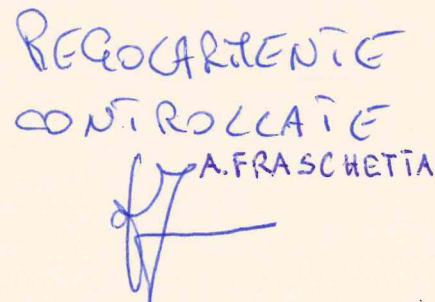 REGOLARMENTE
CONTROLLATE
A. FRASCHETTA